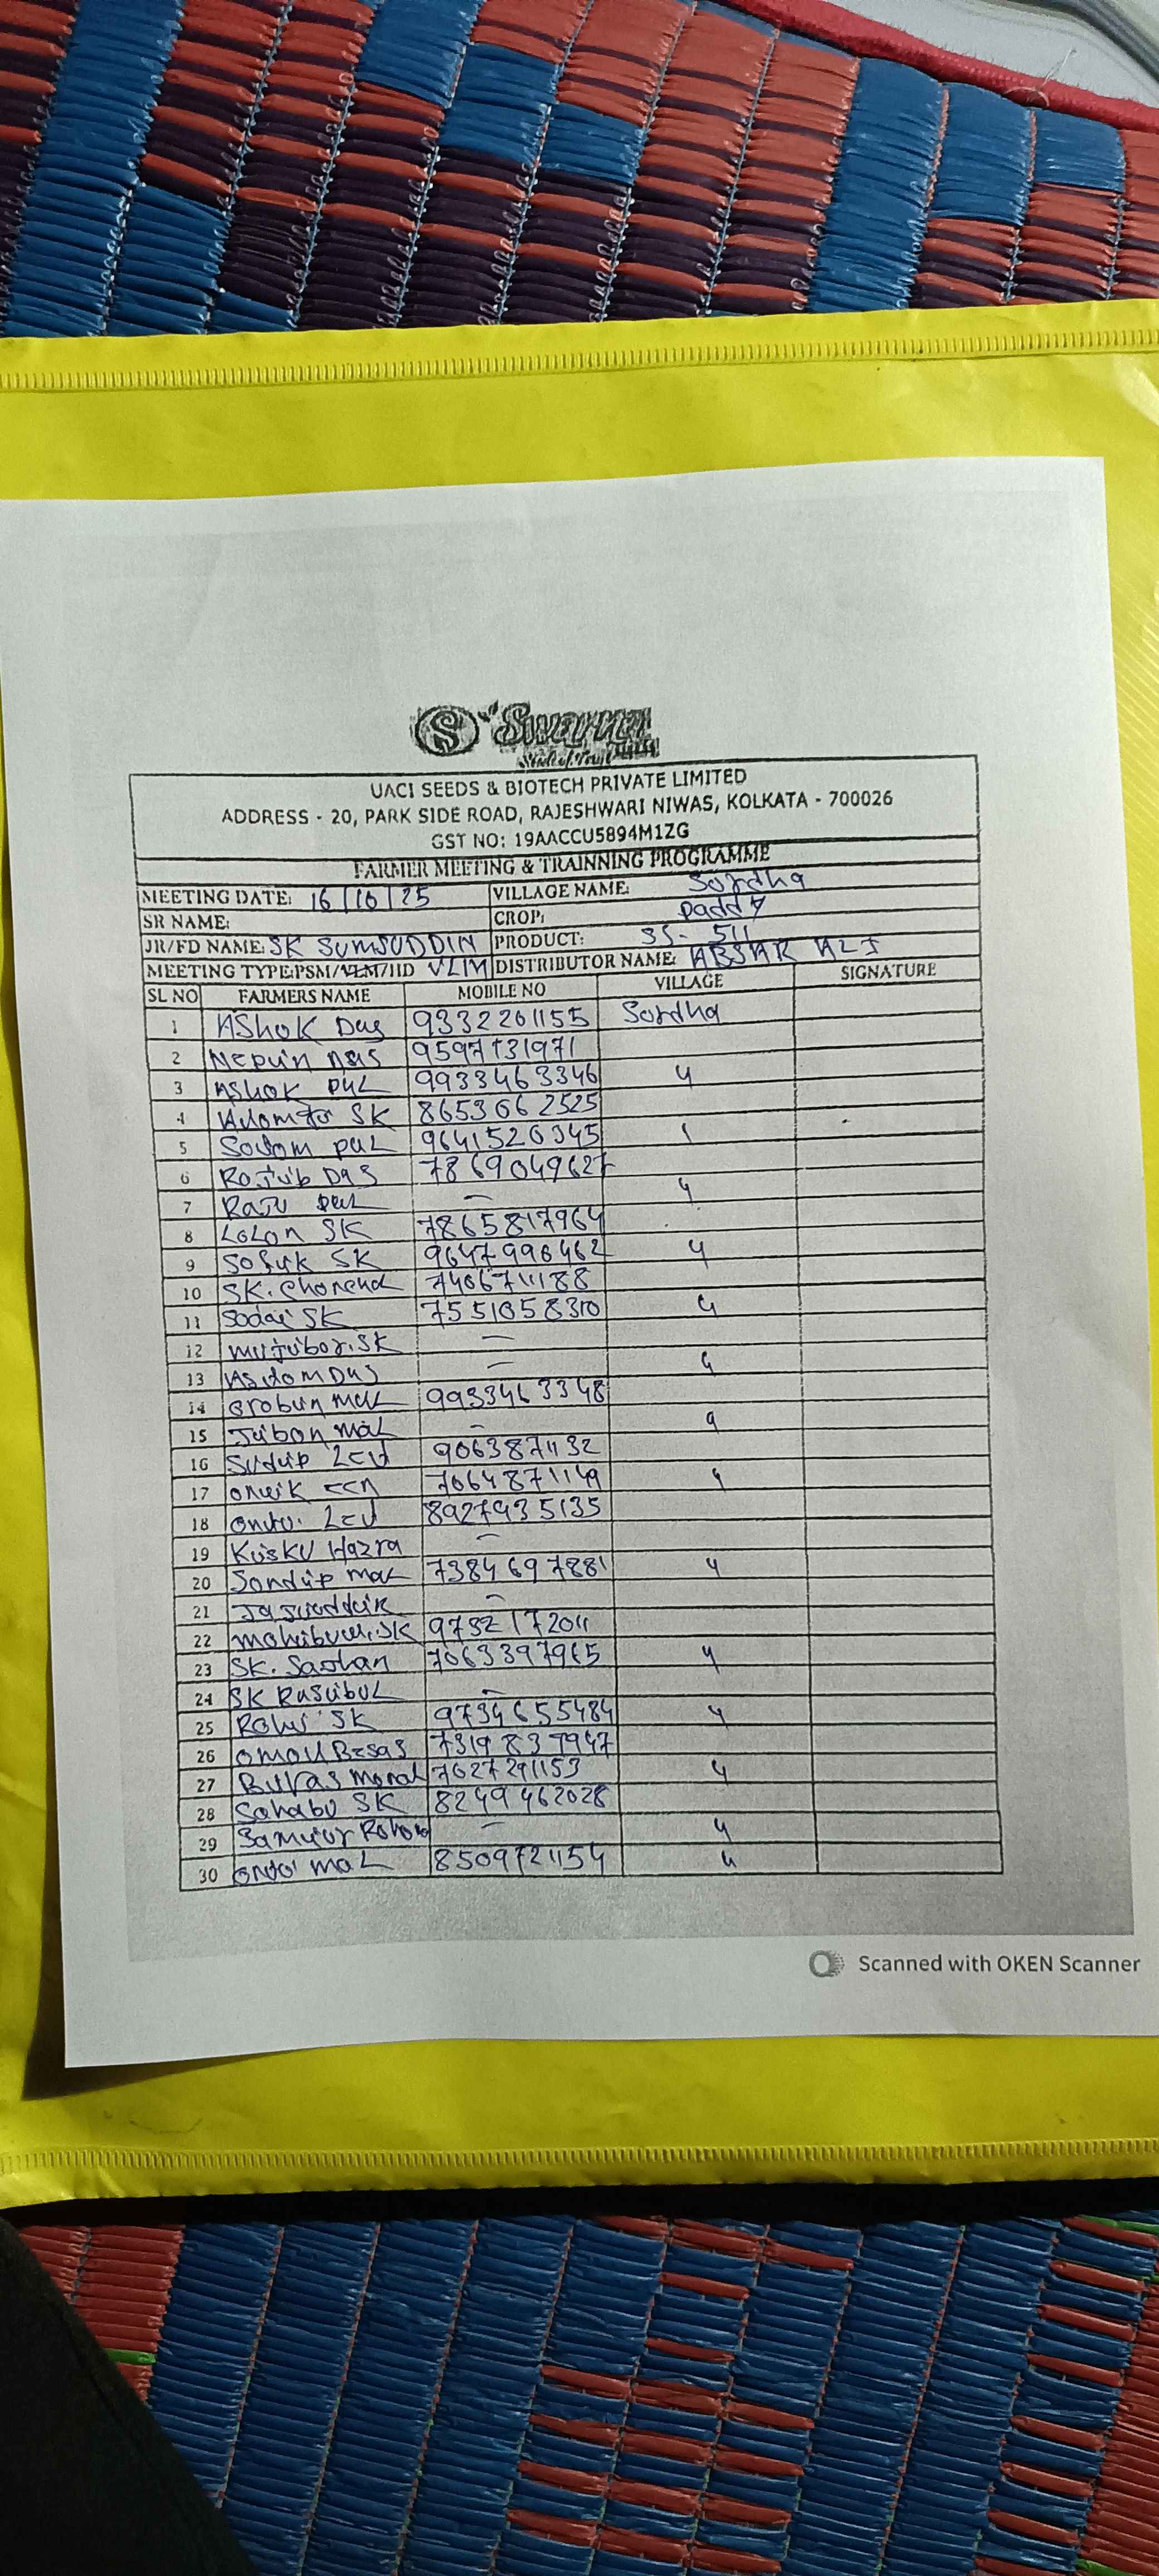 S Swarna
UACI SEEDS & BIOTECH PRIVATE LIMITED
ADDRESS - 20, PARK SIDE ROAD, RAJESHWARI NIWAS, KOLKATA - 700026
GST NO: 19AACCU5894M1ZG
FARMER MEETING & TRAINNING PROGRAMME
MEETING DATE: 16/10/25 VILLAGE NAME: Sordha
SR NAME: CROP: Paddy
JR/FD NAME: SK SUMSUDDIN PRODUCT: SS- 511
MEETING TYPE:PSM/VLM/JJD VLIM DISTRIBUTOR NAME: ABSAR ALI
SL NO FARMERS NAME MOBILE NO VILLAGE SIGNATURE
1 AShok Das 9332201155 Sordha
2 Nepuin Das 9597731971
3 AShok pal 9933463346 4
4 SK 8653662525
5 pal 9641520345
6 Rojuib Das 7869049627
7 Raju pal — 4
8 LoLon SK 7865817964
9 Sofuk SK 9647990462 4
10 SK. 7406711188
11 Sodai SK 7551058310 4
12 mujubor.SK —
13 Das — 4
14 mal 9933463348
15 Juban mal — 9
16 Sudip 9063871132
17 7064871149 4
18 8927935135
19 Kuisku Hazra —
20 Sondip mal 7384697881 4
21 —
22 SK 9732172011
23 SK. Saohan 7063397965 4
24 SK Rasuibul —
25 SK 9734655484 4
26 7319837947
27 7627291153 4
28 Sahabu SK 8249462028
29 — 4
30 mal 8509721154 4
Scanned with OKEN Scanner